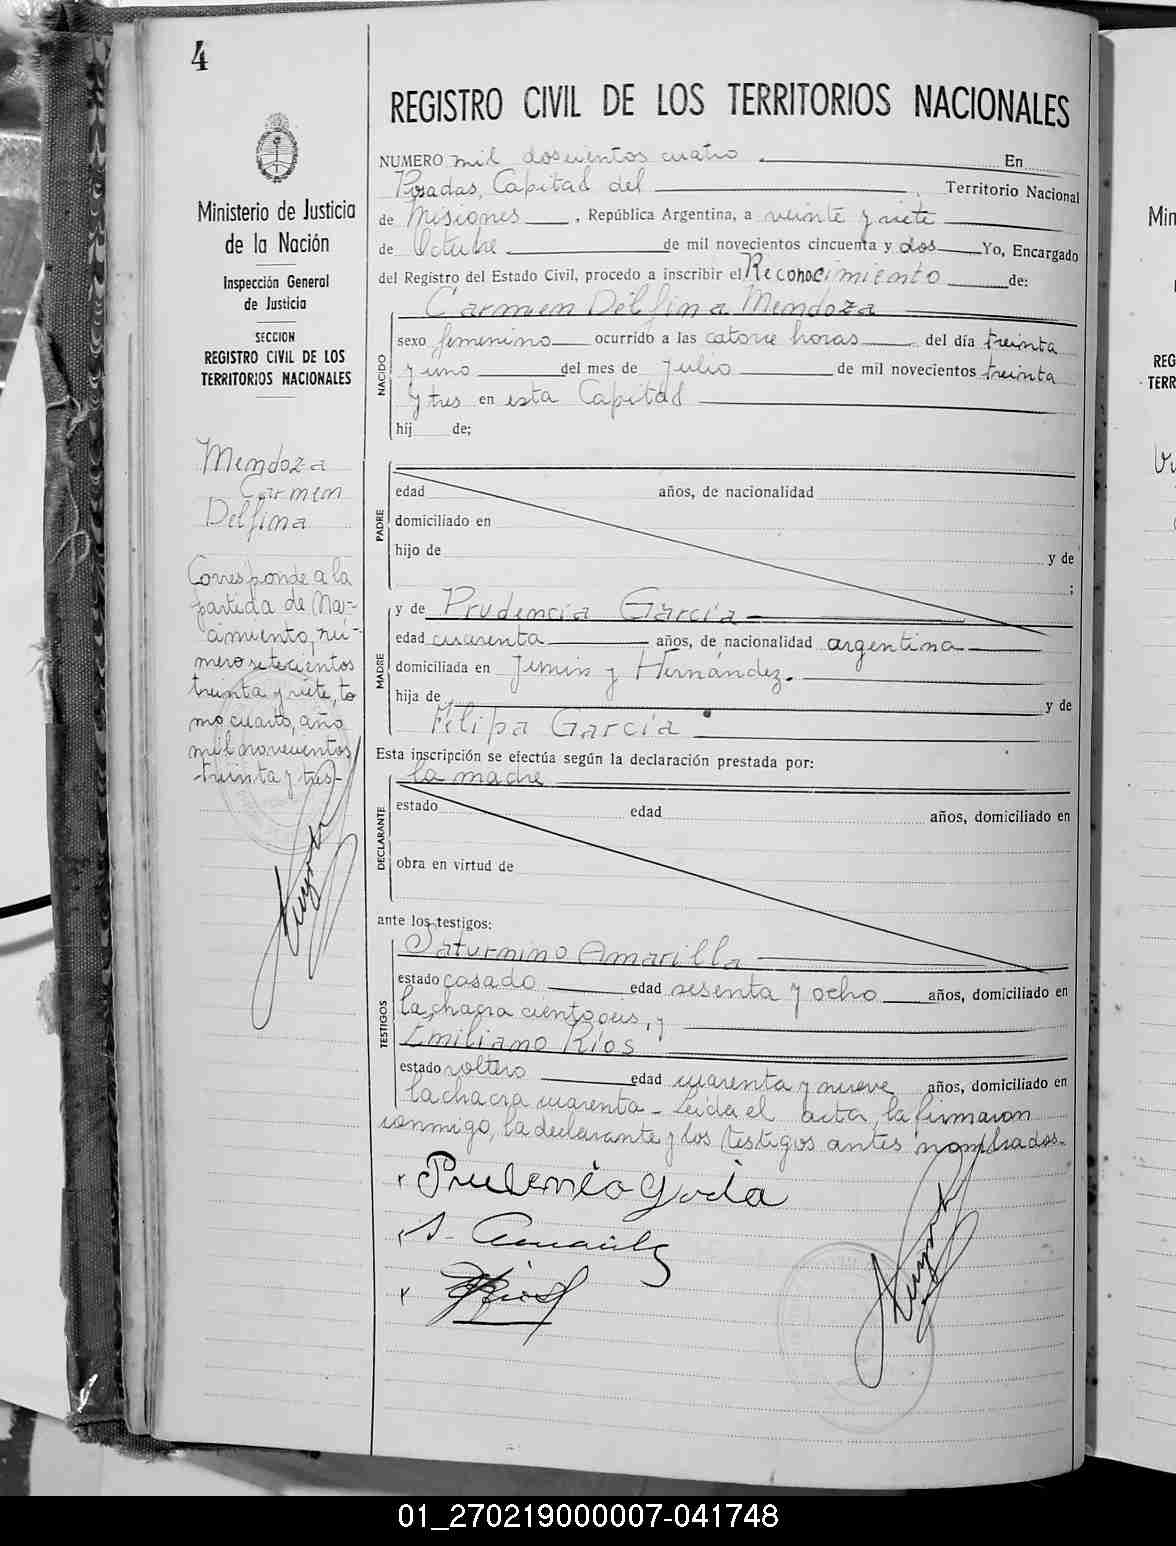 4
REGISTRO CIVIL DE LOS TERRITORIOS NACIONALES
Ministerio de Justicia
de la Nación
Inspección General
de Justicia
SECCION
REGISTRO CIVIL DE LOS
TERRITORIOS NACIONALES
Mendoza
Carmen
Delfina
Corresponde a la
partida de Na-
cimiento, nú-
mero setecientos
treinta y siete, to
mo cuarto, año
mil novecientos
treinta y tres-
NUMERO mil doscientos cuatro En
Posadas, Capital del Territorio Nacional
de Misiones, República Argentina, a veinte y siete
de Octubre de mil novecientos cincuenta y dos Yo, Encargado
del Registro del Estado Civil, procedo a inscribir el Reconocimiento de:
Carmen Delfina Mendoza
NACIDO
sexo femenino ocurrido a las catorce horas del día treinta
y uno del mes de Julio de mil novecientos treinta
y tres en esta Capital
hij de;
PADRE
edad años, de nacionalidad
domiciliado en
hijo de y de
;
MADRE
y de Prudencia García
edad cuarenta años, de nacionalidad argentina
domiciliada en Junin y Hernández.
hija de y de
Filipa García
Esta inscripción se efectúa según la declaración prestada por:
la madre
DECLARANTE
estado edad años, domiciliado en
obra en virtud de
ante los testigos:
TESTIGOS
Saturnino Amarilla
estado casado edad sesenta y ocho años, domiciliado en
la chacra ciento seis, y
Emiliano Ríos
estado soltero edad cuarenta y nueve años, domiciliado en
la chacra cuarenta - Leida el acta, la firmaron
conmigo, la declarante y los testigos antes nombrados.
Min
REG
TERR
01_270219000007-041748